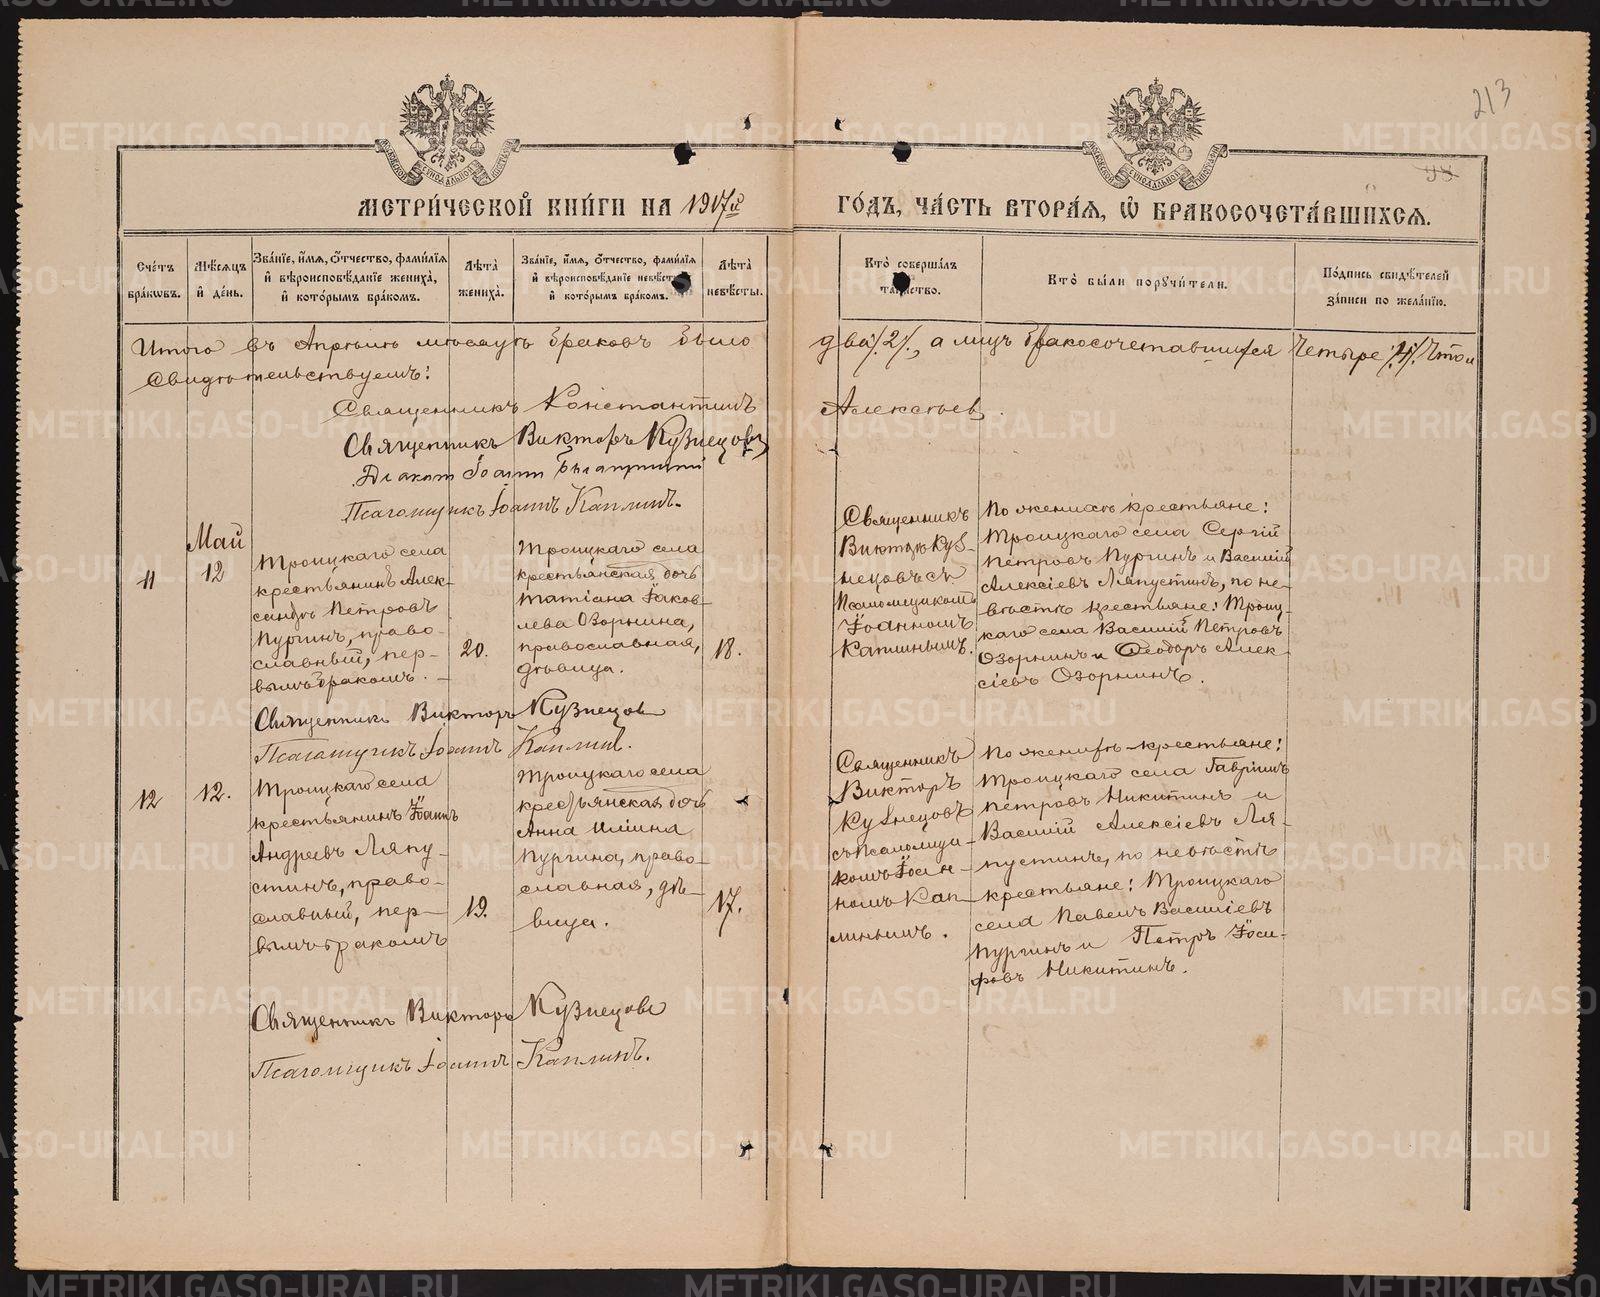 213
МЕТРИЧЕСКОЙ КНИГИ НА 1917й ГОДЪ, ЧАСТЬ ВТОРАЯ, Ѡ БРАКОСОЧЕТАВШИХСЯ.
Счетъ браковъ.
Мѣсяцъ и день.
Званіе, имя, отчество, фамилія
и вѣроисповѣданіе жениха,
и которымъ бракомъ.
Лѣта жениха.
Званіе, имя, отчество, фамилія
и вѣроисповѣданіе невѣсты
и которымъ бракомъ.
Лѣта невѣсты.
Кто совершалъ
таинство.
Кто были поручители.
Подпись свидѣтелей
записи по желанію.
Итого въ Апрѣлѣ мѣсяцѣ браковъ было два /2/, а лицъ бракосочетавшихся четыре /4/. Что и
свидѣтельствуемъ:
Священникъ Константинъ Алексѣевъ.
Священникъ Викторъ Кузнецовъ
Діаконъ Іоаннъ
Псаломщикъ Іоаннъ Каплинъ.
11
Май
12
Троицкаго села
крестьянинъ Алек-
сандръ Петровъ
Пургинъ, право-
славный, пер-
вымъ бракомъ.
20.
Троицкаго села
крестьянская дочь
Татіана Іаков-
лева Озорнина,
православная,
дѣвица.
18.
Священникъ
Викторъ Куз-
нецовъ съ
Псаломщикомъ
Іоанномъ
Каплинымъ.
По женихѣ крестьяне:
Троицкаго села Сергій
Петровъ Пургинъ и Василій
Алексіевъ Ляпустинъ, по не-
вѣстѣ крестьяне: Троиц-
каго села Василій Петровъ
Озорнинъ и Ѳеодоръ Алек-
сіевъ Озорнинъ.
Священникъ Викторъ Кузнецовъ
Псаломщикъ Іоаннъ Каплинъ.
12
12.
Троицкаго села
крестьянинъ Іоаннъ
Андреевъ Ляпу-
стинъ, право-
славный, пер-
вымъ бракомъ
19.
Троицкаго села
крестьянская дочь
Анна Илiина
Пургина, право-
славная, дѣ-
вица.
17.
Священникъ
Викторъ
Кузнецовъ
съ Псаломщи-
комъ Іоан-
номъ Кап-
линымъ.
По женихѣ крестьяне:
Троицкаго села Гавріилъ
Петровъ Никитинъ и
Василій Алексіевъ Ля-
пустинъ, по невѣстѣ
крестьяне: Троицкаго
села Павелъ Василіевъ
Пургинъ и Петръ Іоси-
фовъ Никитинъ.
Священникъ Викторъ Кузнецовъ
Псаломщикъ Іоаннъ Каплинъ.
METRIKI.GASO-URAL.RU